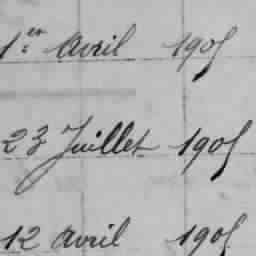 1er Avril 1905
23 Juillet 1905
12 Avril 1905